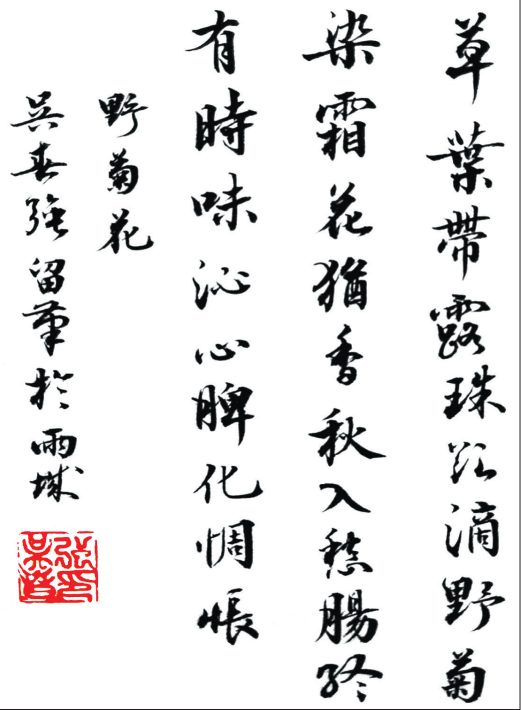 草葉帶露珠欲滴野菊
染霜花猶香秋入愁腸終
有時味沁心脾化惆悵
野菊花
吳春強留筆於雨城